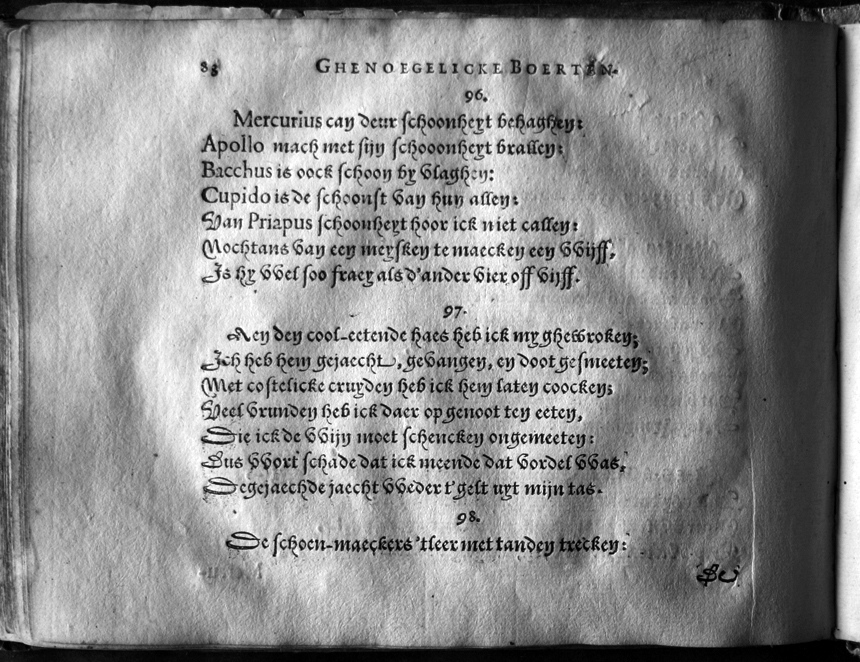 88 GHENOEGELICKE BOERTEN.
96.
Mercurius can deur schoonheyt behaghen:
Apollo mach met sijn schooonheyt brallen:
Bacchus is oock schoon by vlaghen:
Cupido is de schoonst van hun allen:
Van Priapus schoonheyt hoor ick niet callen:
Nochtans van een meysken te maecken een vvijff,
Is hy vvel soo fraey als d'ander vier off vijff.
97.
Aen den cool-eetende haes heb ick my ghewroken;
Ich heb hem gejaecht, gevangen, en doot gesmeeten;
Met costelicke cruyden heb ick hem laten coocken;
Veel vrunden heb ick daer op genoot ten eeten,
Die ick de vvijn moet schencken ongemeeten:
Dus vvort schade dat ick meende dat vordel vvas,
De gejaechde jaecht vveder t'gelt uyt mijn tas.
98.
De schoen-maeckers 'tleer met tanden trecken: